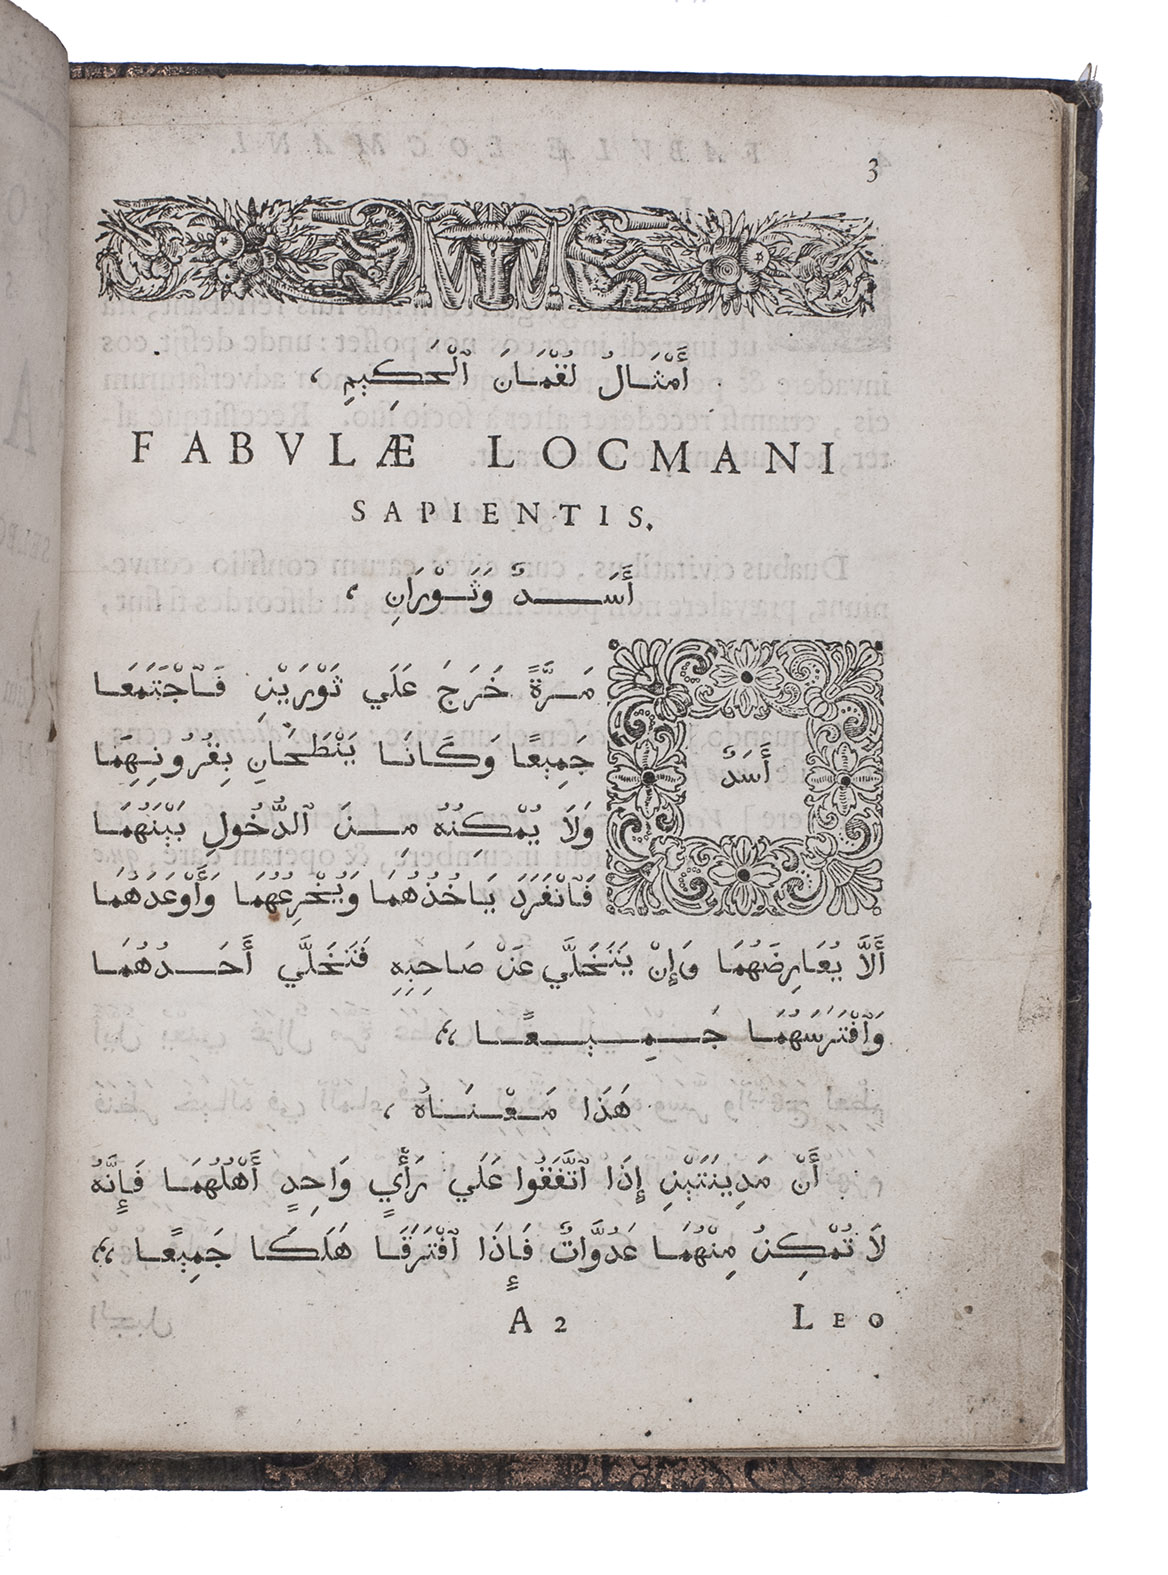 3
أَمْثَالُ لُقْمَانَ ٱلْحَكِيمِ ،
FABVLÆ LOCMANI
SAPIENTIS.
أَسَدٌ وَثَوْرَانِ ،
أَسَدٌ
مَرَّةً خَرَجَ عَلَي ثَوْرَيْنِ فَٱجْتَمَعَا
جَمِيعًا وَكَانَا يَنْطَحَانِ بِقُرُونِهِمَا
وَلَا يُمْكِنُهُ مِنَ ٱلدُّخُولِ بَيْنَهُمَا
فَٱنْفَرَدَ يَاخُذُهُمَا وَيُخْرِعُهُمَا وَأَوْعَدَهُمَا
أَلَّا يُعَارِضَهُمَا وَإِنْ يَتَخَلَّي عَنْ صَاحِبِهِ فَتَخَلَّي أَحَدُهُمَا
وَٱفْتَرَسَهُمَا جَمِيعًا ،،
هَذَا مَعْنَاهُ ،
أَنْ مَدِينَتَيْنِ إِذَا ٱتَّفَقُوا عَلَي رَأْيٍ وَاحِدٍ أَهْلُهُمَا فَإِنَّهُ
لَا تُمْكِنُ مِنْهُمَا عَدُوَّاتٌ فَإِذَا ٱفْتَرَقَا هَلَكَا جَمِيعًا ،،
A 2 LEO